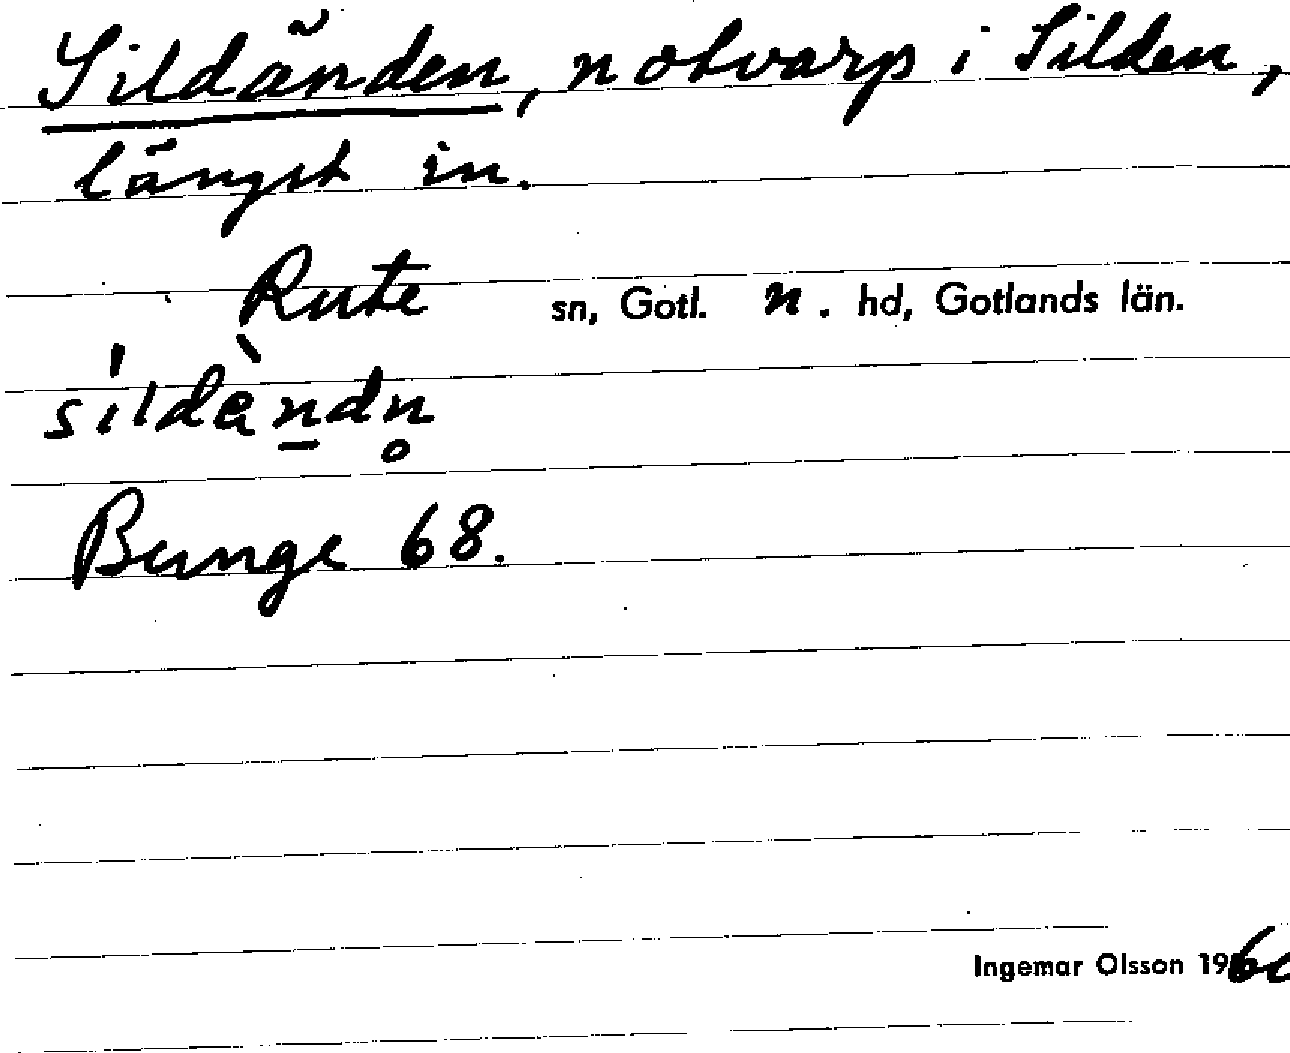 Sildänden, notvarp i Silden,
längst in.
Rute sn, Gotl. n. hd, Gotlands län.
síldèn̲dn̥
Bunge 68.
Ingemar Olsson 196